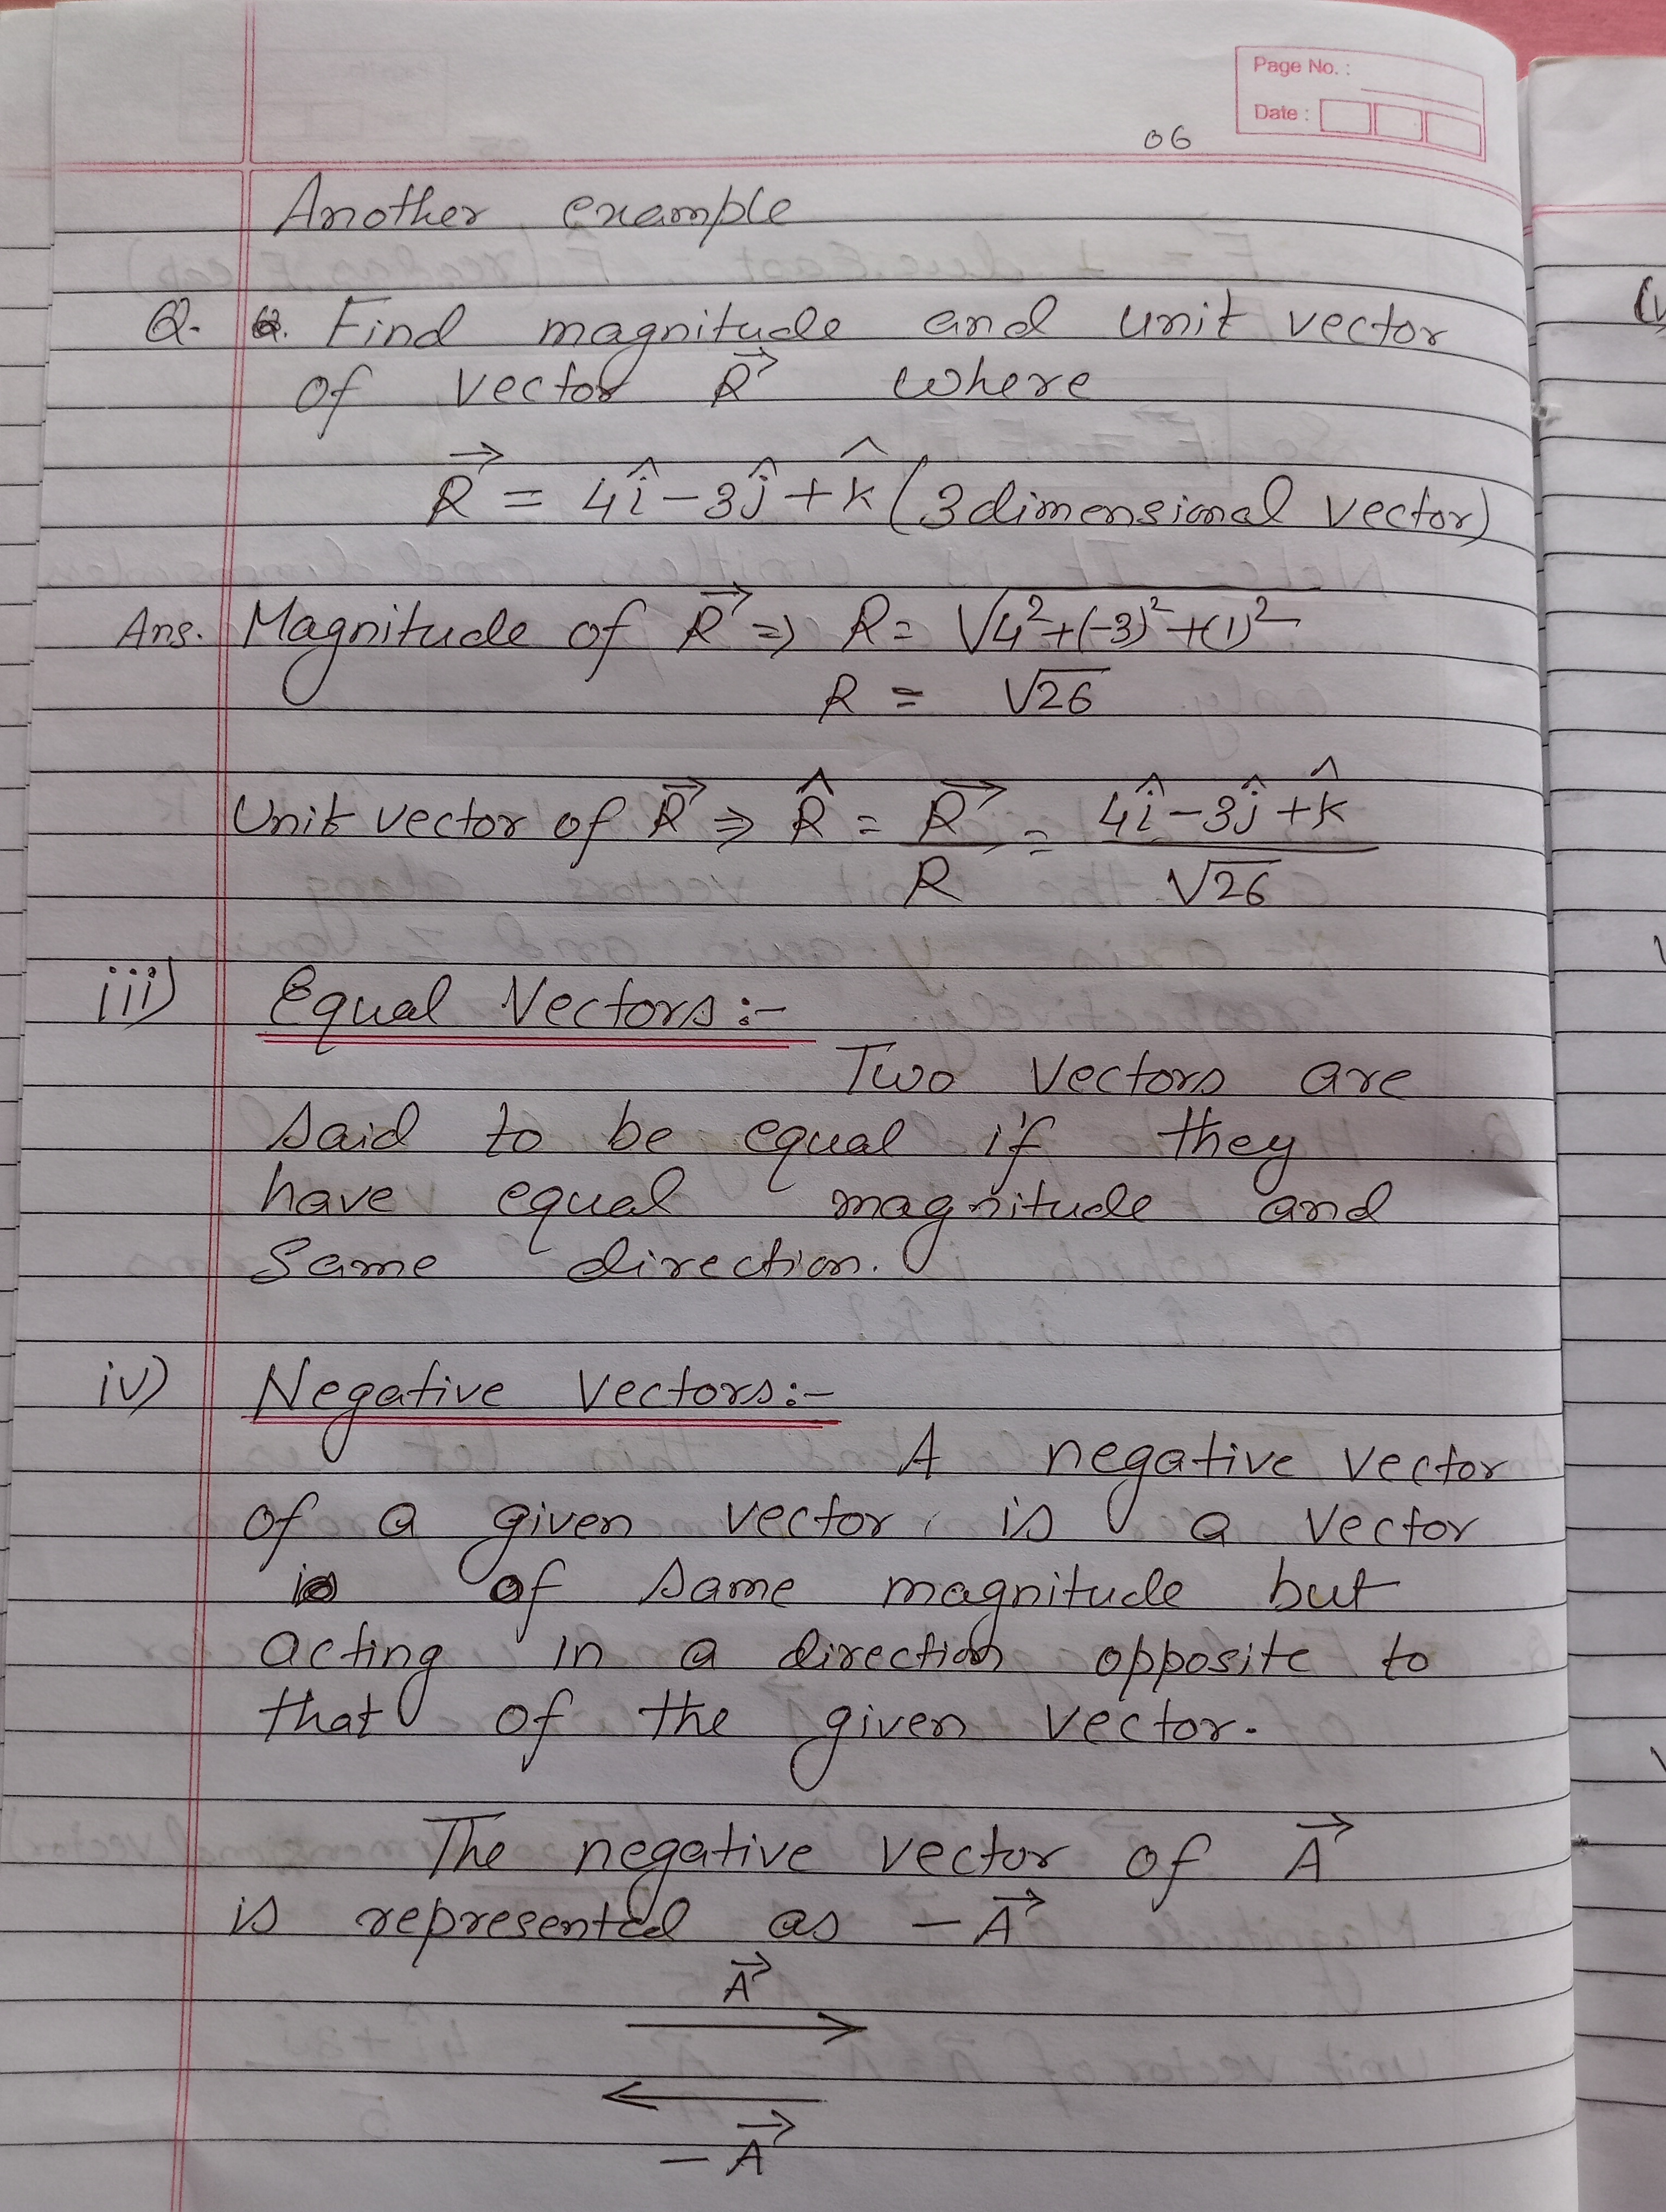 Page No. :
Date :
06
Another example
Q. Find magnitude and unit vector
of vector R⃗ where
R⃗ = 4î - 3ĵ + k̂ (3 dimensional vector)
Ans. Magnitude of R⃗ ⇒ R = √4² + (-3)² + (1)²
R = √26
Unit vector of R⃗ ⇒ R̂ = R⃗/R = 4î - 3ĵ + k̂/√26
iii) Equal Vectors:-
Two vectors are
said to be equal if they
have equal magnitude and
same direction.
iv) Negative Vectors:-
A negative vector
of a given vector is a vector
of same magnitude but
acting in a direction opposite to
that of the given vector.
The negative vector of A⃗
is represented as -A⃗
A⃗
-A⃗